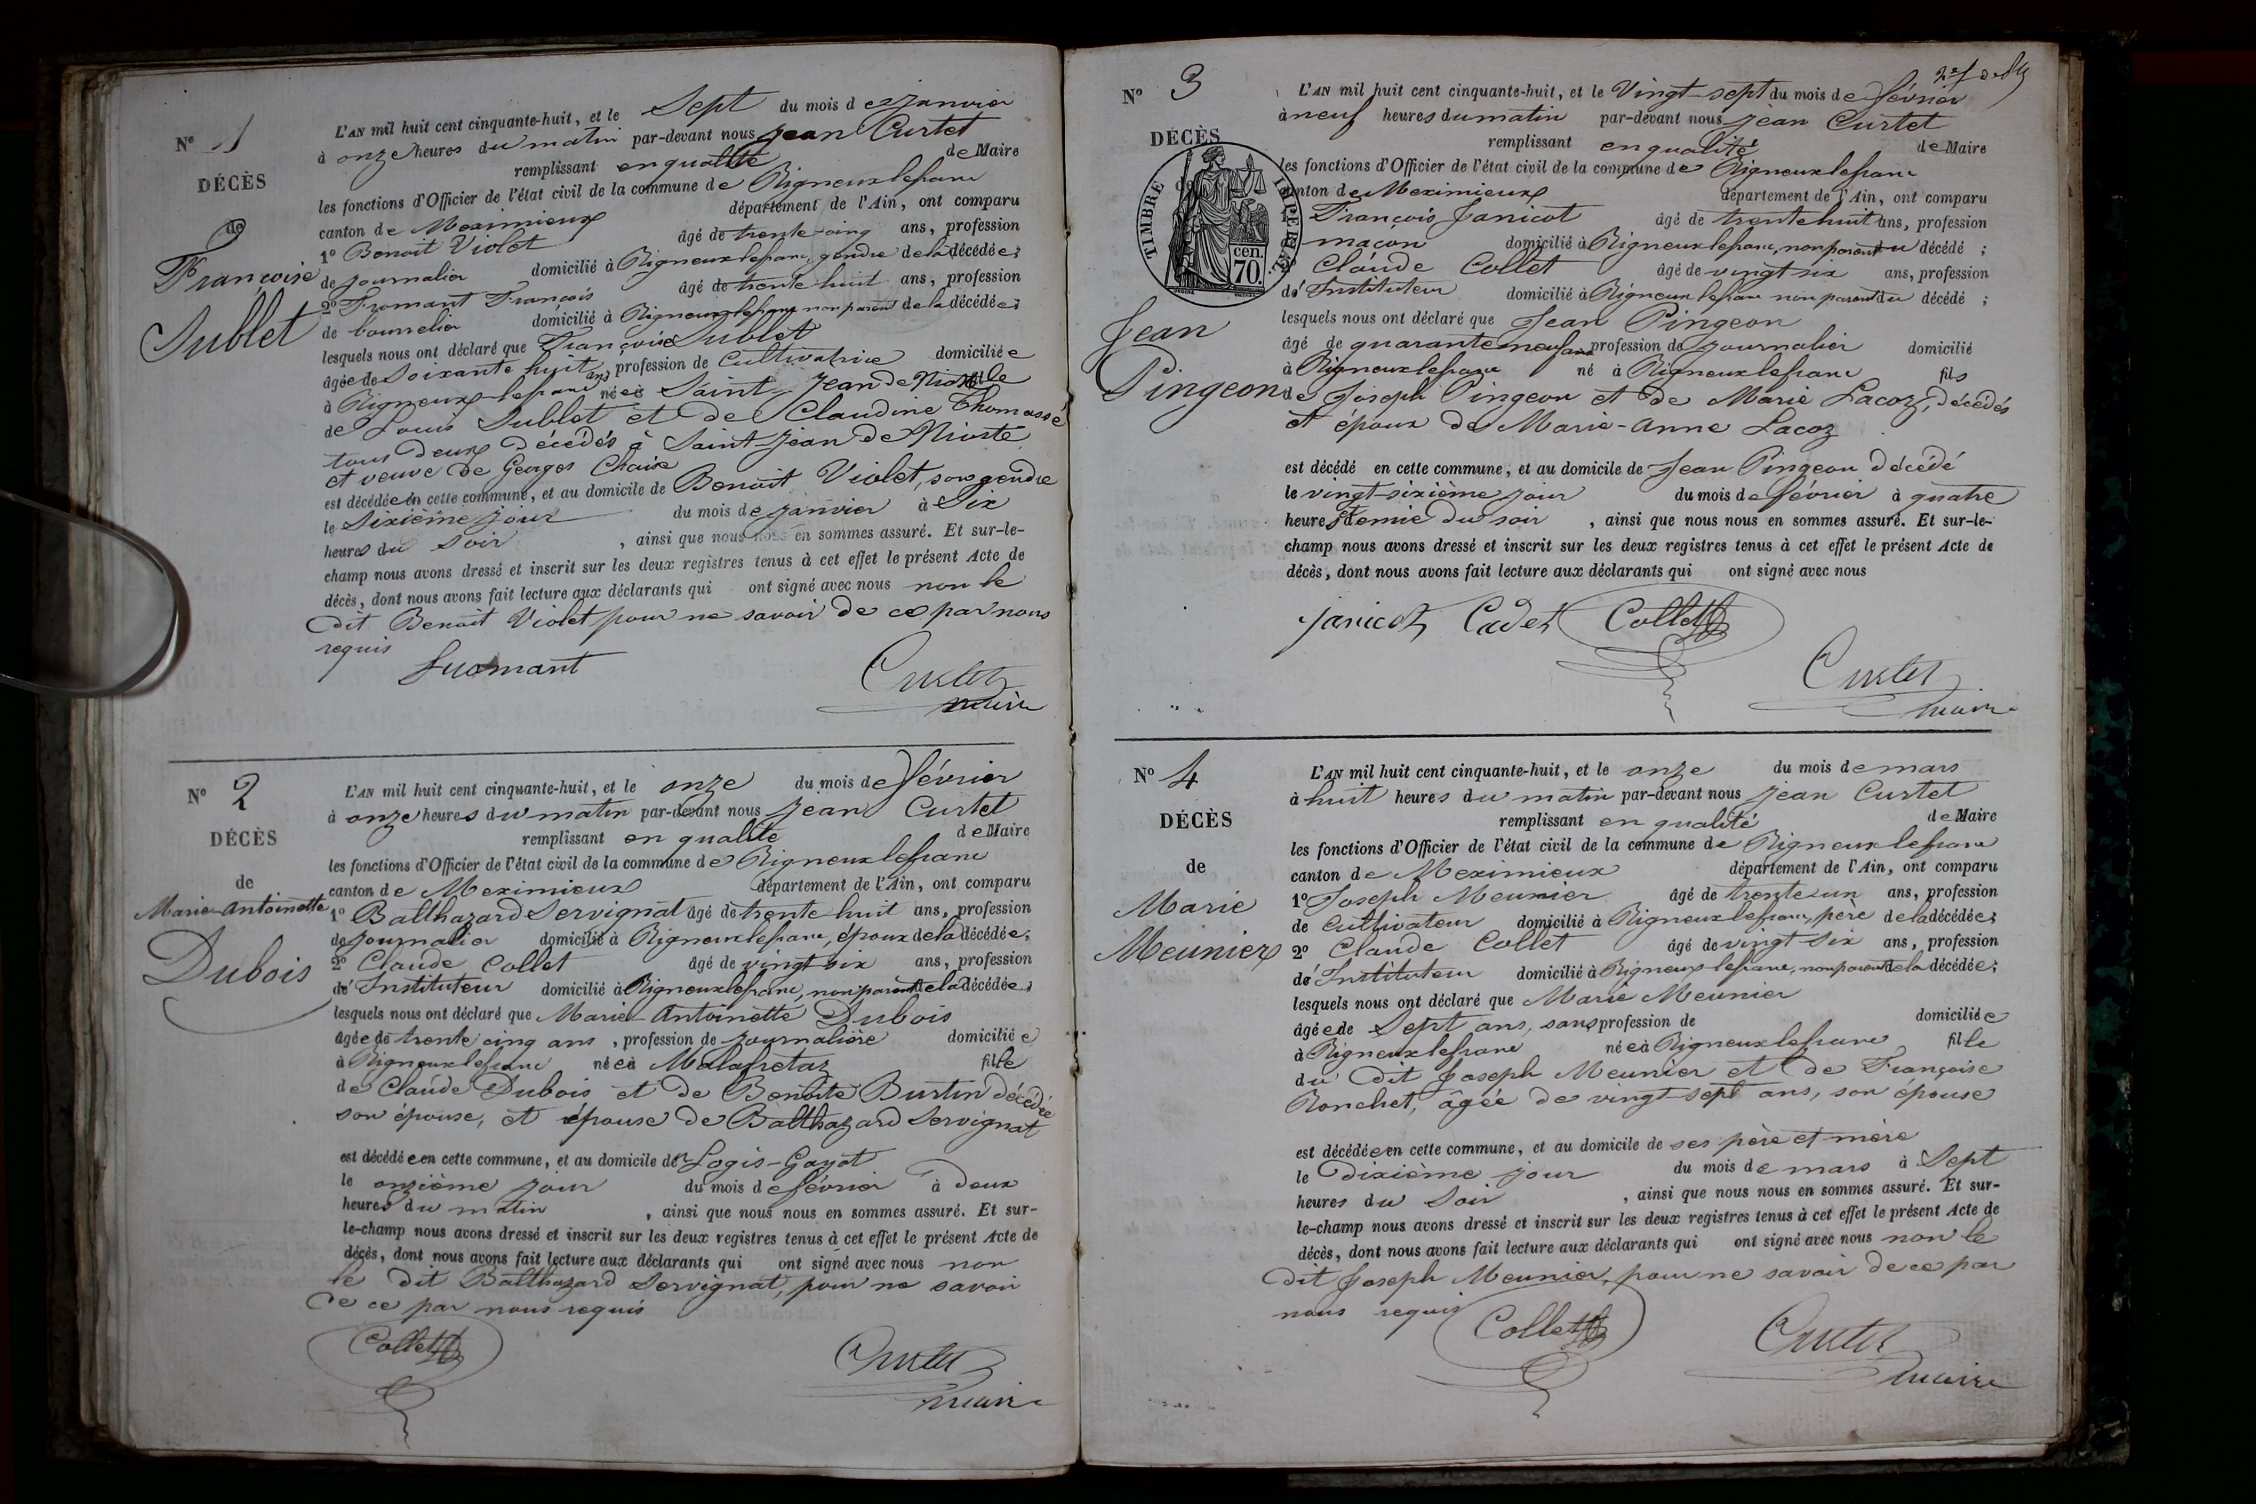 Nº 1
DÉCÈS
de
Françoise
Sublet
L'AN mil huit cent cinquante-huit, et le Sept du mois de Janvier
à onze heures du matin par-devant nous Jean Curtet
remplissant en qualité de Maire
les fonctions d'Officier de l'état civil de la commune de Rigneux le franc
canton de Meximieux département de l'Ain, ont comparu
1º Benoit Violet âgé de trente-cinq ans, profession
de journalier domicilié à Rigneux le franc, gendre de la décédée;
2º Fromant François âgé de trente huit ans, profession
de bourrelier domicilié à Rigneux le franc non parent de la décédée;
lesquels nous ont déclaré que Françoise Sublet
âgée de Soixante huit ans, profession de Cultivatrice domiciliée
à Rigneux-le franc née à Saint-Jean de Niost fille
de Louis Sublet et de Claudine Thomassé
tous deux décédés à Saint Jean de Nioste
et veuve de Georges Chaix
est décédée en cette commune, et au domicile de Benoit Violet, son gendre
le Sixième jour du mois de janvier à Six
heures du soir , ainsi que nous nous en sommes assuré. Et sur-le-
champ nous avons dressé et inscrit sur les deux registres tenus à cet effet le présent Acte de
décès, dont nous avons fait lecture aux déclarants qui ont signé avec nous non le
dit Benoit Violet pour ne savoir de ce par nous
requis
Fromant
Curtet
maire
Nº 2
DÉCÈS
de
Marie-Antoinette
Dubois
L'AN mil huit cent cinquante-huit, et le onze du mois de février
à onze heures du matin par-devant nous Jean Curtet
remplissant en qualité de Maire
les fonctions d'Officier de l'état civil de la commune de Rigneux le franc
canton de Meximieux département de l'Ain, ont comparu
1º Balthazard Servignat âgé de trente huit ans, profession
de journalier domicilié à Rigneux le franc, époux de la décédée;
2º Claude Collet âgé de vingt six ans, profession
de Instituteur domicilié à Rigneux le franc, non parent de la décédée;
lesquels nous ont déclaré que Marie-Antoinette Dubois
âgée de trente cinq ans, profession de journalière domiciliée
à Rigneux le franc née à Malafretaz fille
de Claude Dubois et de Benoite Burtin décédée
son épouse, et épouse de Balthazard Servignat
est décédée en cette commune, et au domicile de Logis-Gayot
le onzième jour du mois de février à deux
heures du matin , ainsi que nous nous en sommes assuré. Et sur-
le-champ nous avons dressé et inscrit sur les deux registres tenus à cet effet le présent Acte de
décès, dont nous avons fait lecture aux déclarants qui ont signé avec nous non
le dit Balthazard Servignat, pour ne savoir
de ce par nous requis
Collet
Curtet
maire
Nº 3
DÉCÈS
de
TIMBRE IMPERIAL
70 cen.
Jean
Pingeon
L'AN mil huit cent cinquante-huit, et le Vingt-sept du mois de février
à neuf heures du matin par-devant nous Jean Curtet
remplissant en qualité de Maire
les fonctions d'Officier de l'état civil de la commune de Rigneux le franc
canton de Meximieux département de l'Ain, ont comparu
François Janicot âgé de trente huit ans, profession
maçon domicilié à Rigneux le franc, non parent du décédé ;
Claude Collet âgé de vingt six ans, profession
de Instituteur domicilié à Rigneux le franc non parent du décédé ;
lesquels nous ont déclaré que Jean Pingeon
âgé de quarante neuf ans profession de journalier domicilié
à Rigneux le franc né à Rigneux le franc fils
de Joseph Pingeon et de Marie Lacoz, décédés
et époux de Marie-Anne Lacoz
est décédé en cette commune, et au domicile de Jean Pingeon décédé
le vingt-sixième jour du mois de février à quatre
heures demie du soir , ainsi que nous nous en sommes assuré. Et sur-le-
champ nous avons dressé et inscrit sur les deux registres tenus à cet effet le présent Acte de
décès, dont nous avons fait lecture aux déclarants qui ont signé avec nous
Janicot Cadet Collet
Curtet
maire
Nº 4
DÉCÈS
de
Marie
Meunier
L'AN mil huit cent cinquante-huit, et le onze du mois de mars
à huit heures du matin par-devant nous Jean Curtet
remplissant en qualité de Maire
les fonctions d'Officier de l'état civil de la commune de Rigneux le franc
canton de Meximieux département de l'Ain, ont comparu
1º Joseph Meunier âgé de trente un ans, profession
de Cultivateur domicilié à Rigneux le franc, père de la décédée;
2º Claude Collet âgé de vingt six ans, profession
de Instituteur domicilié à Rigneux le franc, non parent de la décédée;
lesquels nous ont déclaré que Marie Meunier
âgée de Sept ans, sans profession de domiciliée
à Rigneux le franc née à Rigneux le franc fille
du dit Joseph Meunier et de Françoise
Ronchet, âgée de vingt-sept ans, son épouse
est décédée en cette commune, et au domicile de ses père et mère
le dixième jour du mois de mars à Sept
heures du Soir , ainsi que nous nous en sommes assuré. Et sur-
le-champ nous avons dressé et inscrit sur les deux registres tenus à cet effet le présent Acte de
décès, dont nous avons fait lecture aux déclarants qui ont signé avec nous non le
dit Joseph Meunier, pour ne savoir de ce par
nous requis
Collet
Curtet
maire